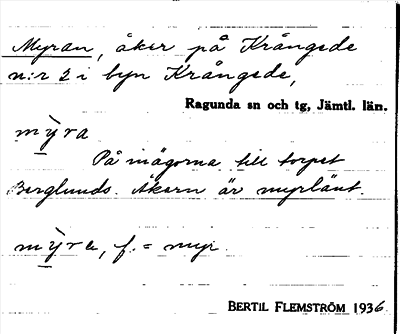 Myran, åker på Krångede
n:r 2 i byn Krångede,
Ragunda sn och tg, Jämtl. län.
mỳra
På inägorna till torpet
Berglunds. Åkern är myrlänt.
mỳra, f. = myr.
BERTIL FLEMSTRÖM 1936.